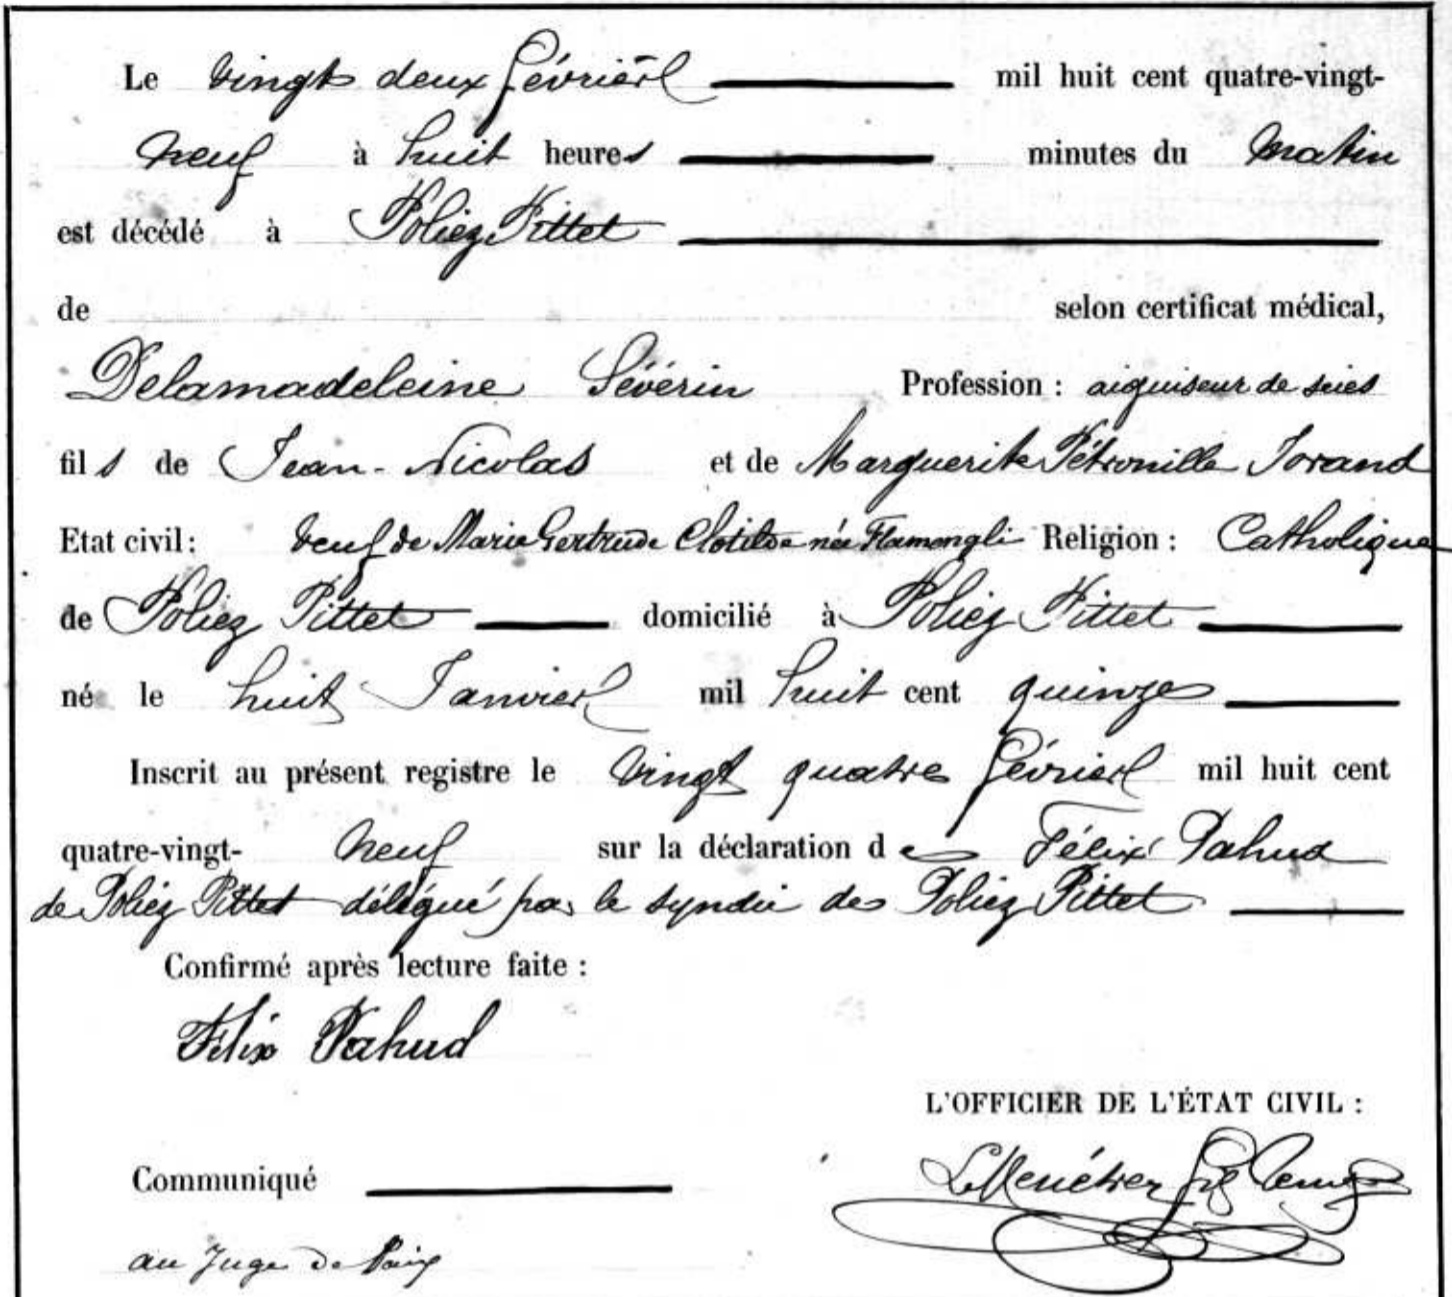 Le vingt deux février mil huit cent quatre-vingt-
neuf à huit heures minutes du matin
est décédé à Poliez Pittet
de selon certificat médical,
Delamadeleine Sévérin Profession : aiguiseur de scies
fils de Jean-Nicolas et de Marguerite Pétronille Jorand
Etat civil : veuf de Marie Gertrude Clotilde née Religion : Catholique
de Poliez Pittet domicilié à Poliez Pittet
né le huit Janvier mil huit cent quinze
Inscrit au présent registre le vingt quatre février mil huit cent
quatre-vingt- neuf sur la déclaration de Félix Pahud
de Poliez Pittet délégué par le syndic de Poliez Pittet
Confirmé après lecture faite :
Félix Pahud
L'OFFICIER DE L'ÉTAT CIVIL :
Communiqué
au Juge de Paix